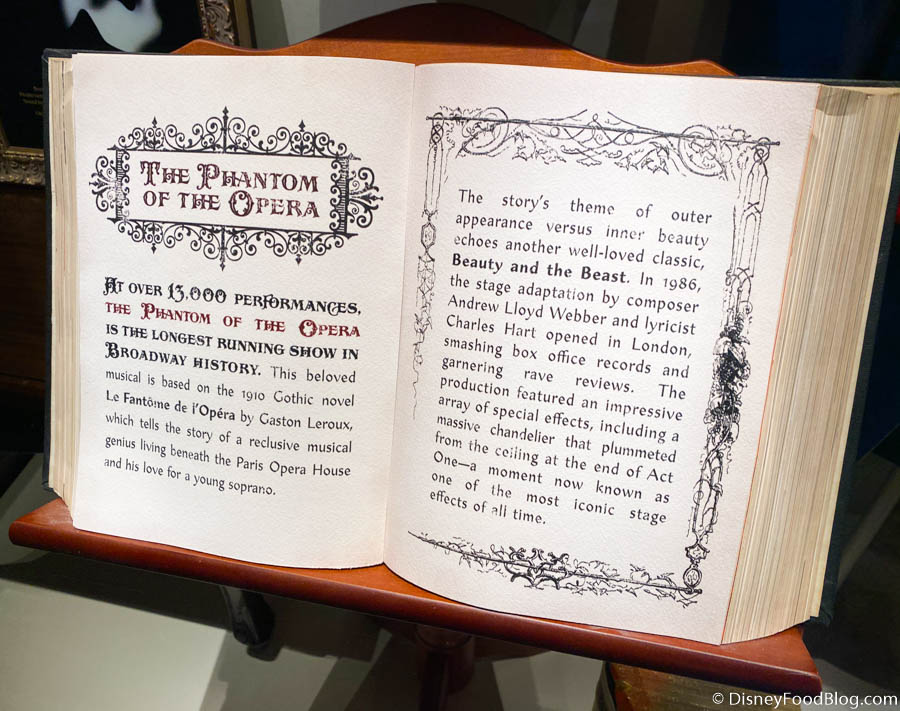 THE PHANTOM
OF THE OPERA
AT OVER 13,000 PERFORMANCES,
THE PHANTOM OF THE OPERA
IS THE LONGEST RUNNING SHOW IN
BROADWAY HISTORY. This beloved
musical is based on the 1910 Gothic novel
Le Fantôme de l'Opéra by Gaston Leroux,
which tells the story of a reclusive musical
genius living beneath the Paris Opera House
and his love for a young soprano.
The story's theme of outer
appearance versus inner beauty
echoes another well-loved classic,
Beauty and the Beast. In 1986,
the stage adaptation by composer
Andrew Lloyd Webber and lyricist
Charles Hart opened in London,
smashing box office records and
garnering rave reviews. The
production featured an impressive
array of special effects, including a
massive chandelier that plummeted
from the ceiling at the end of Act
One—a moment now known as
one of the most iconic stage
effects of all time.
© DisneyFoodBlog.com